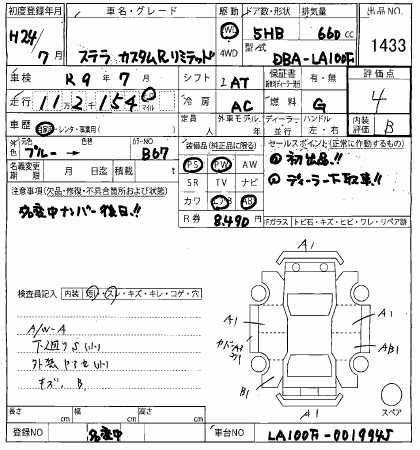 初度登録年月 車名・グレード 駆動 ドア数・形状 排気量 出品NO.
H24/7月 ステラ カスタムRリミテッド 2WD 4WD 5HB 660cc 1433
型式 DBA-LA100F
車検 R9年7月 シフト IAT 保証書 有・無 評価点 4
走行 11万2千154 km マイル 冷房 AC 燃料 G
車歴 自家用・レンタ・事業用( ) 定員 人 外車モデル 年 ディーラー 並行 ハンドル 左・右 内装評価 B
外色 元色 ブルー → 色替 カラーNO B67
装備品(純正品に限る) セールスポイント(正常に作動するもの)
名義変更期限 月 日迄 積載 t
PS PW AW ①初出品!!
SR TV ナビ ②ディーラー下取車!!
カワ エアB AB
注意事項(欠品・修復・不具合箇所および状態)
名変中ナンバー後日!!
R券 8,490円 Fガラス トビ石・キズ・ヒビ・ワレ・リペア跡
検査員記入 内装 ヨレ・スレ・キズ・キレ・コゲ・穴
A/W-A
下廻りS(小)
外装ヤケ(小)
キズ.B
A1
A1
A1
AB1
B1
A1
スペア
長さ cm 幅 cm 高さ cm
登録NO 名変中 車台NO LA100F-0019945